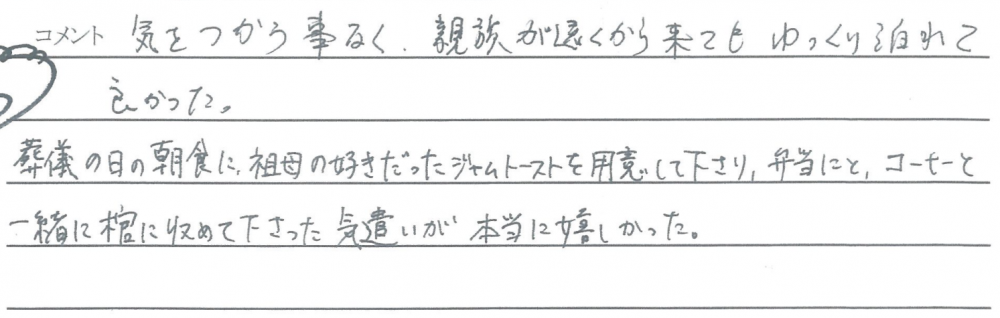 コメント 気をつかう事なく、親族が遠くから来ても ゆっくり泊れて
良かった。
葬儀の日の朝食に、祖母の好きだったジャムトーストを用意して下さり、弁当にと、コーヒーと
一緒に棺に収めて下さった気遣いが 本当に嬉しかった。